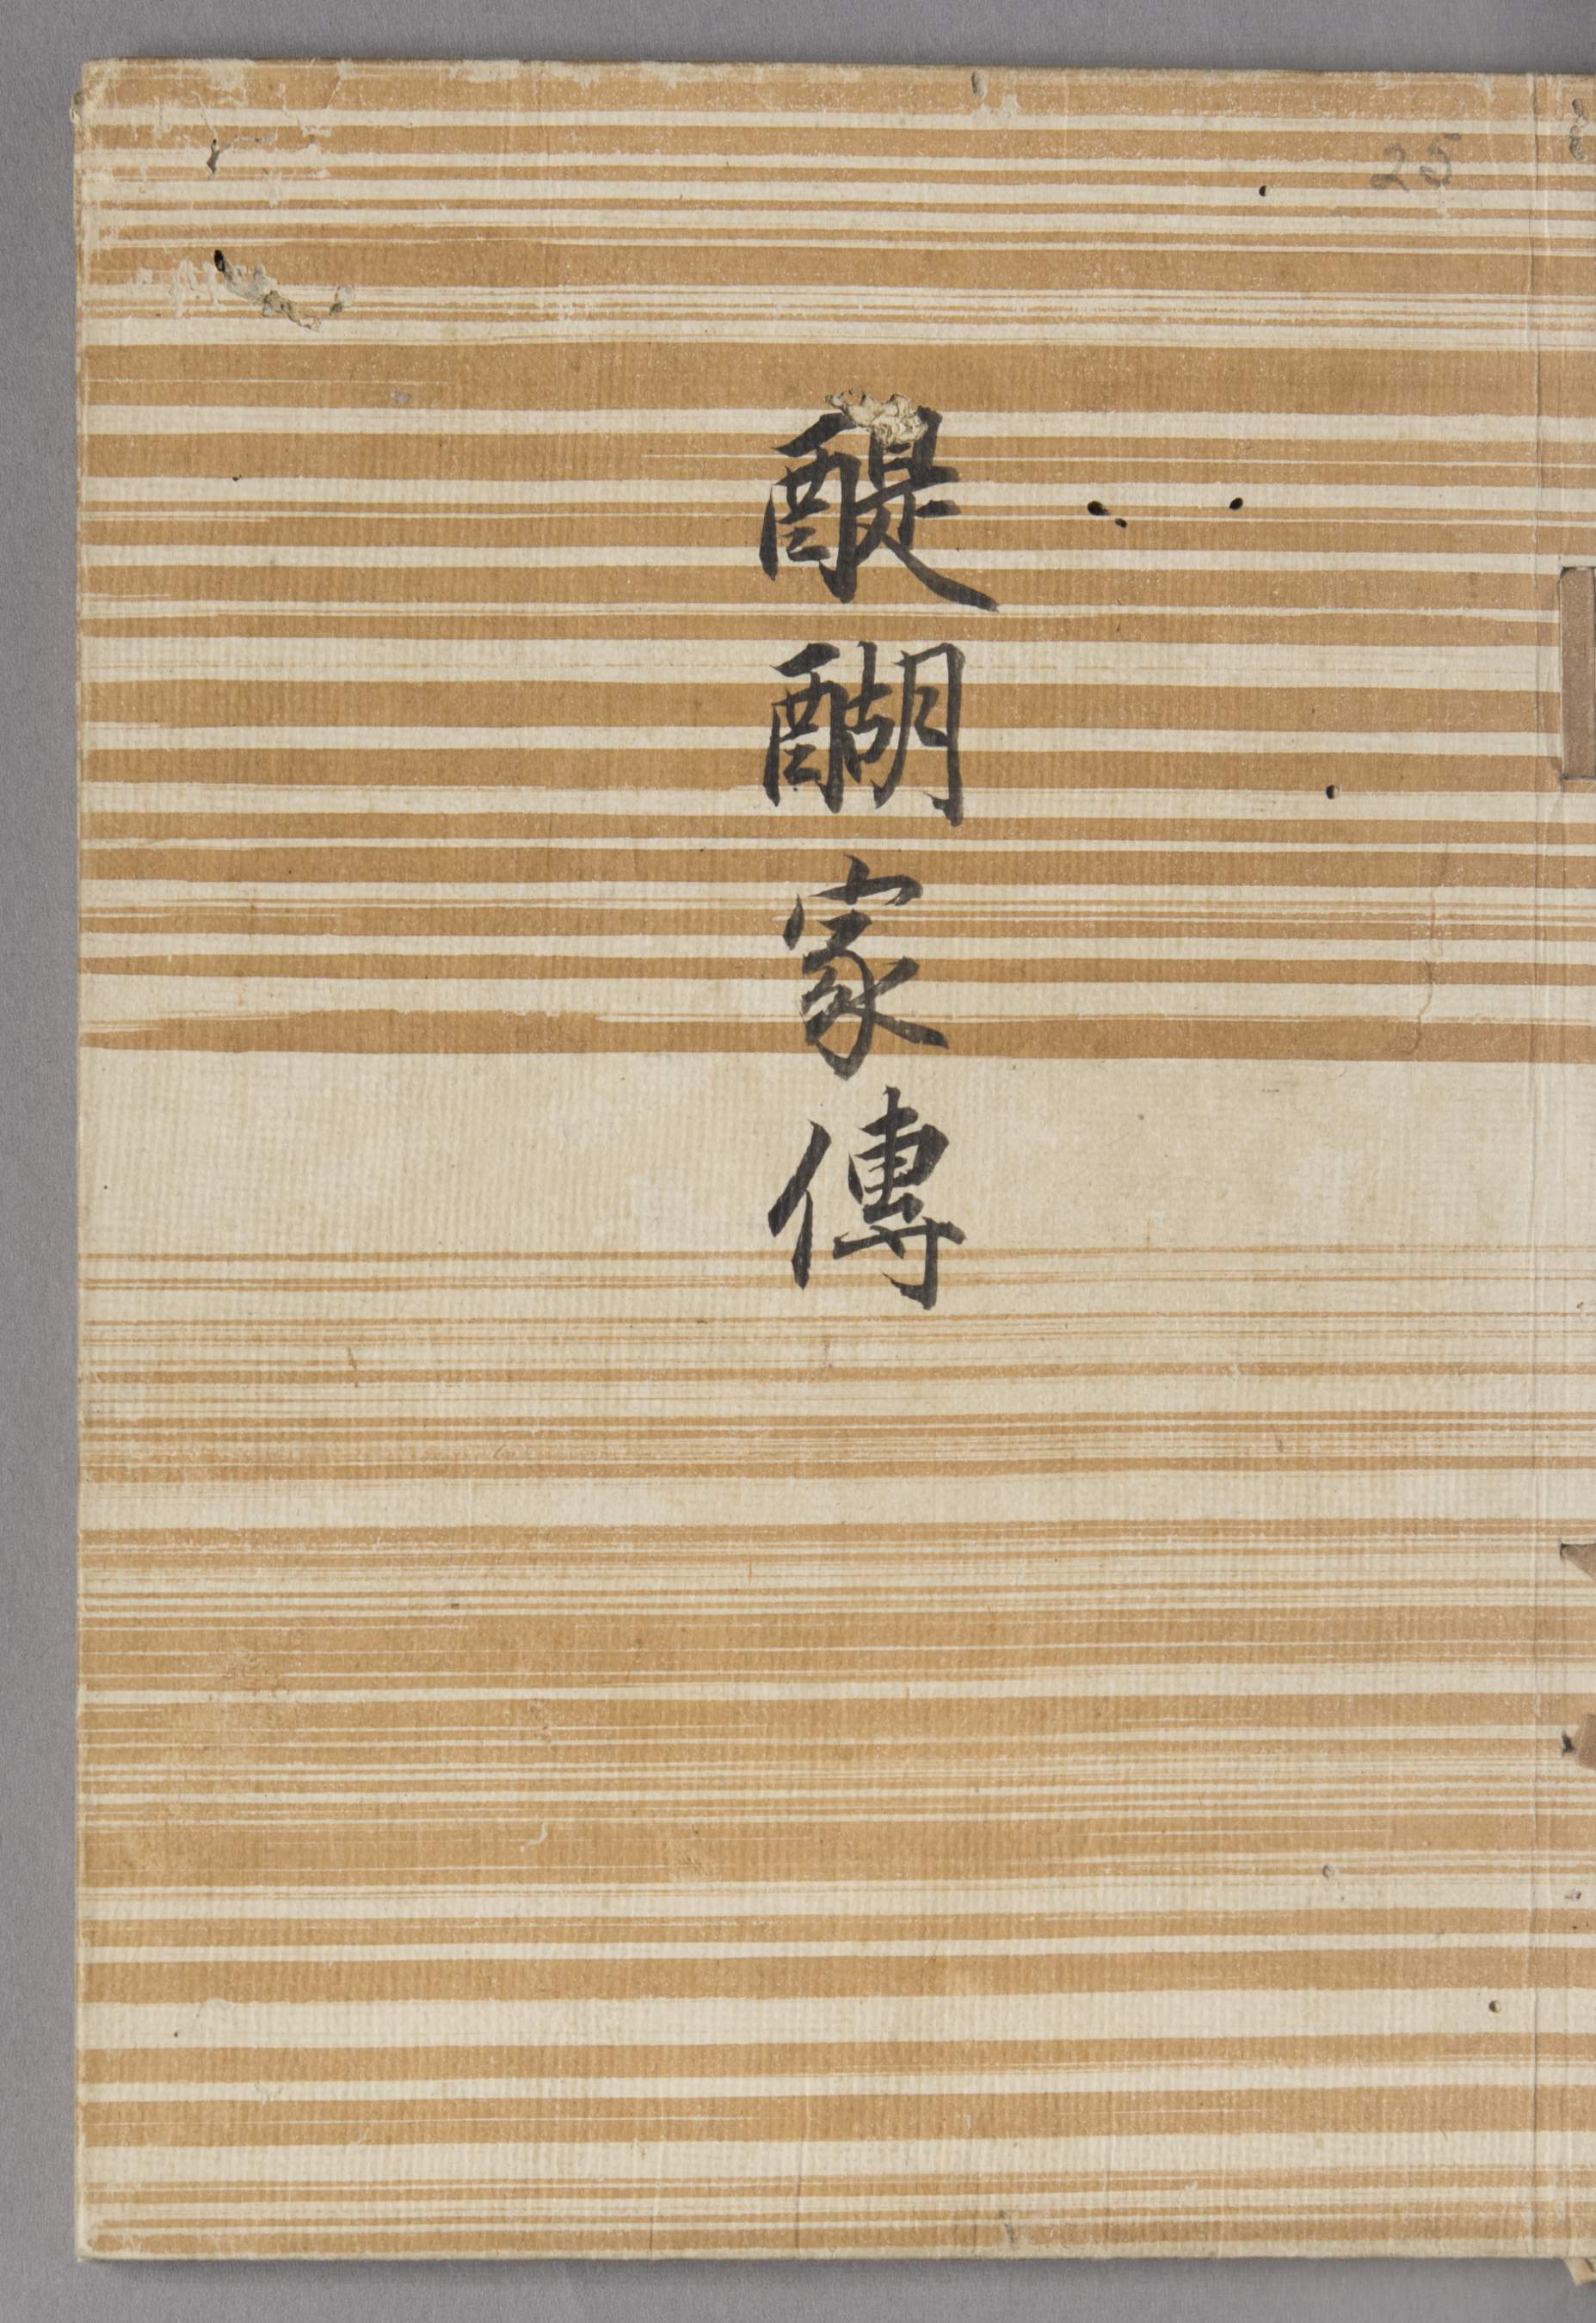 醍醐家傳
25